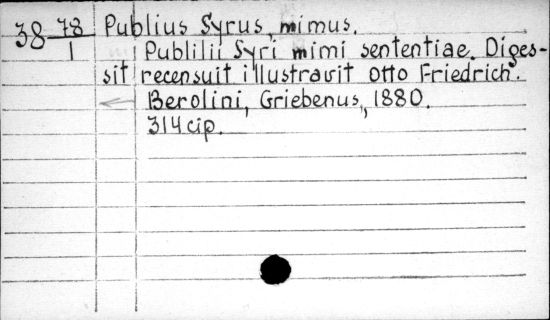 38 78/1 Publius Syrus, mimus.
Publilii Syri mimi sententiae. Diges-
sit recensuit illustravit Otto Friedrich.
Berolini, Griebenus, 1880.
314 cip.